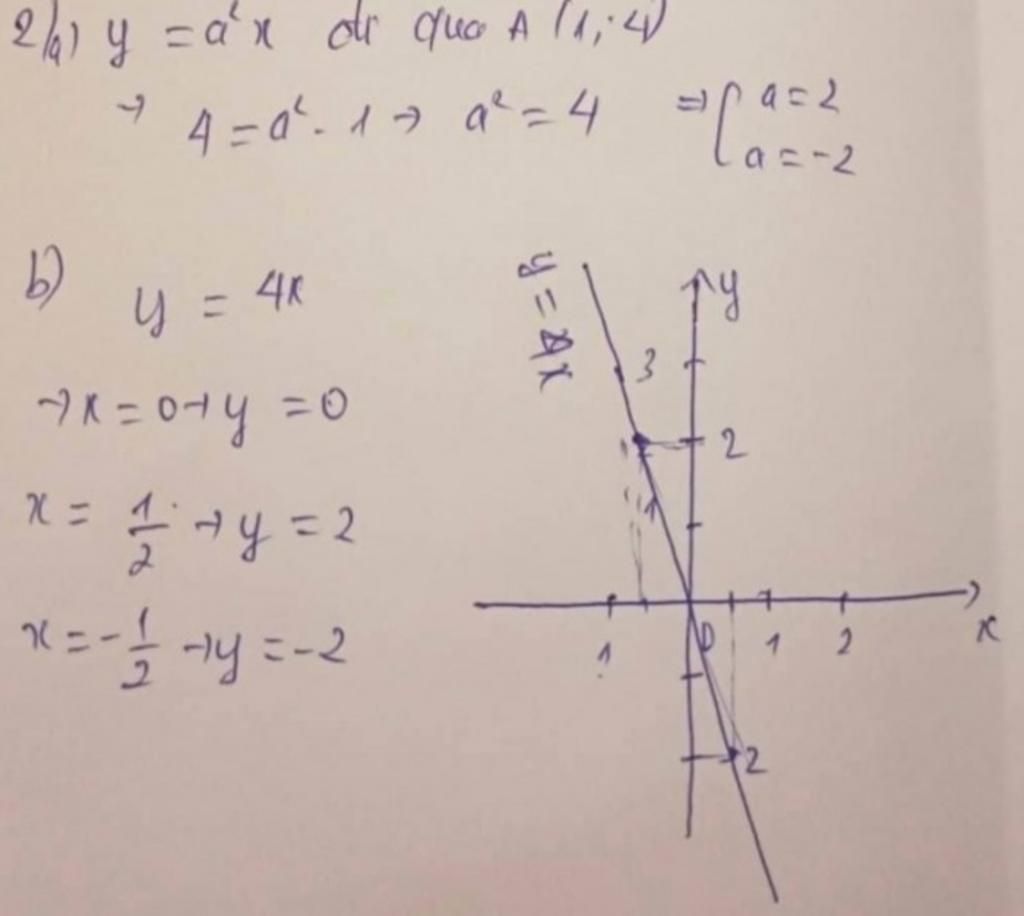 2/a) y = a²x đi qua A (1; 4)
→ 4 = a² . 1 → a² = 4 ⇒ [ a = 2
a = -2
b) y = 4x
→ x = 0 → y = 0
x = 1/2 → y = 2
x = -1/2 → y = -2
y = 4x
y
3
2
1
1 0 1 2 x
2